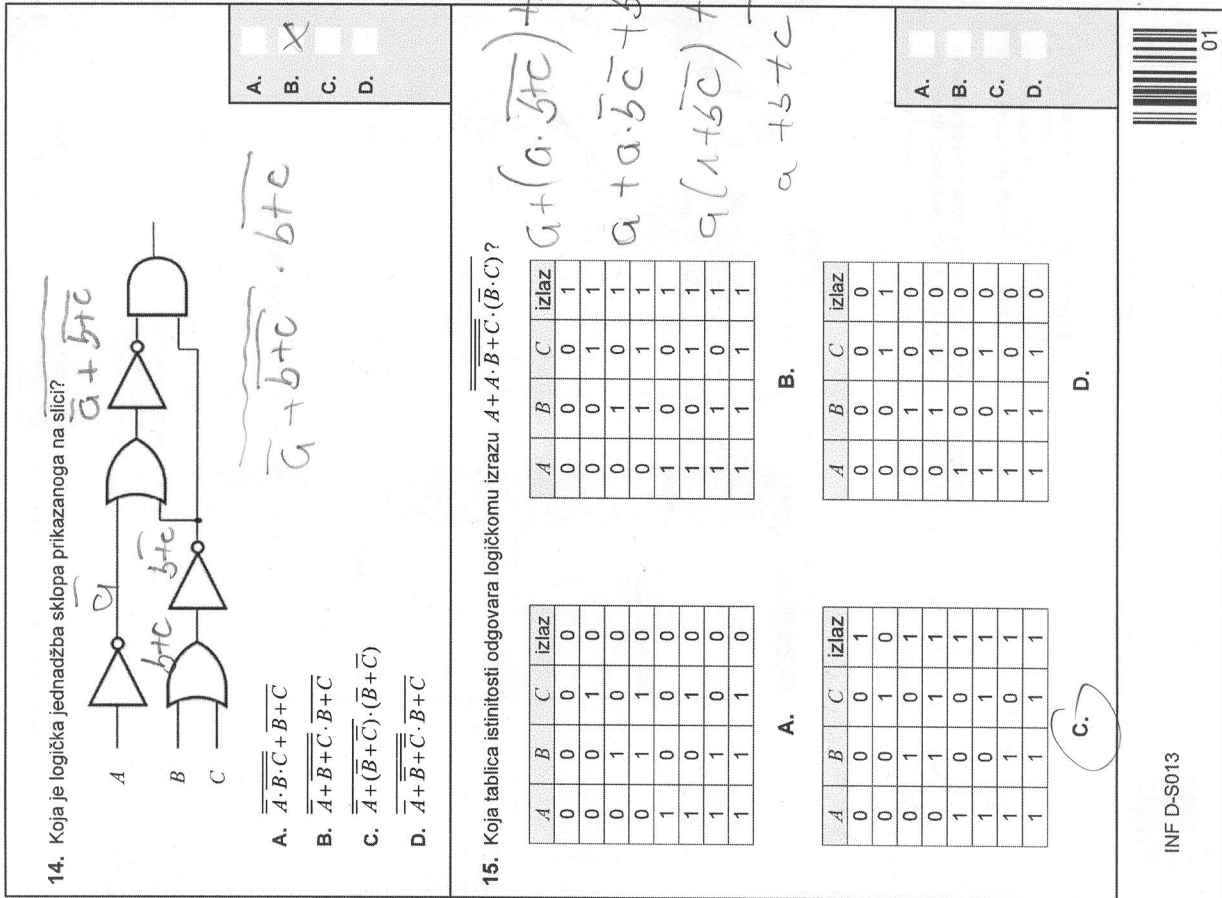 14. Koja je logička jednadžba sklopa prikazanoga na slici?
a̅ + b+c
a̅
b+c
b+c
A
B
C
A. A·B·C+B+C
B. A+B+C·B+C
C. A+(B+C)·(B+C)
D. A+B+C·B+C
a̅ + b+c · b+c
A.
B. X
C.
D.
15. Koja tablica istinitosti odgovara logičkomu izrazu A+A·B+C·(B·C)?
A B C izlaz
0 0 0 0
0 0 1 0
0 1 0 0
0 1 1 0
1 0 0 0
1 0 1 0
1 1 0 0
1 1 1 0
A.
A B C izlaz
0 0 0 1
0 0 1 1
0 1 0 1
0 1 1 1
1 0 0 1
1 0 1 1
1 1 0 1
1 1 1 1
B.
A B C izlaz
0 0 0 1
0 0 1 0
0 1 0 1
0 1 1 1
1 0 0 1
1 0 1 1
1 1 0 1
1 1 1 1
C.
A B C izlaz
0 0 0 0
0 0 1 1
0 1 0 0
0 1 1 0
1 0 0 0
1 0 1 0
1 1 0 0
1 1 1 0
D.
a+(a·b+c)+
a+a·b̅c̅+b
a(1+b̅c̅)+
a+b+c̅
A.
B.
C.
D.
INF D-S013
01